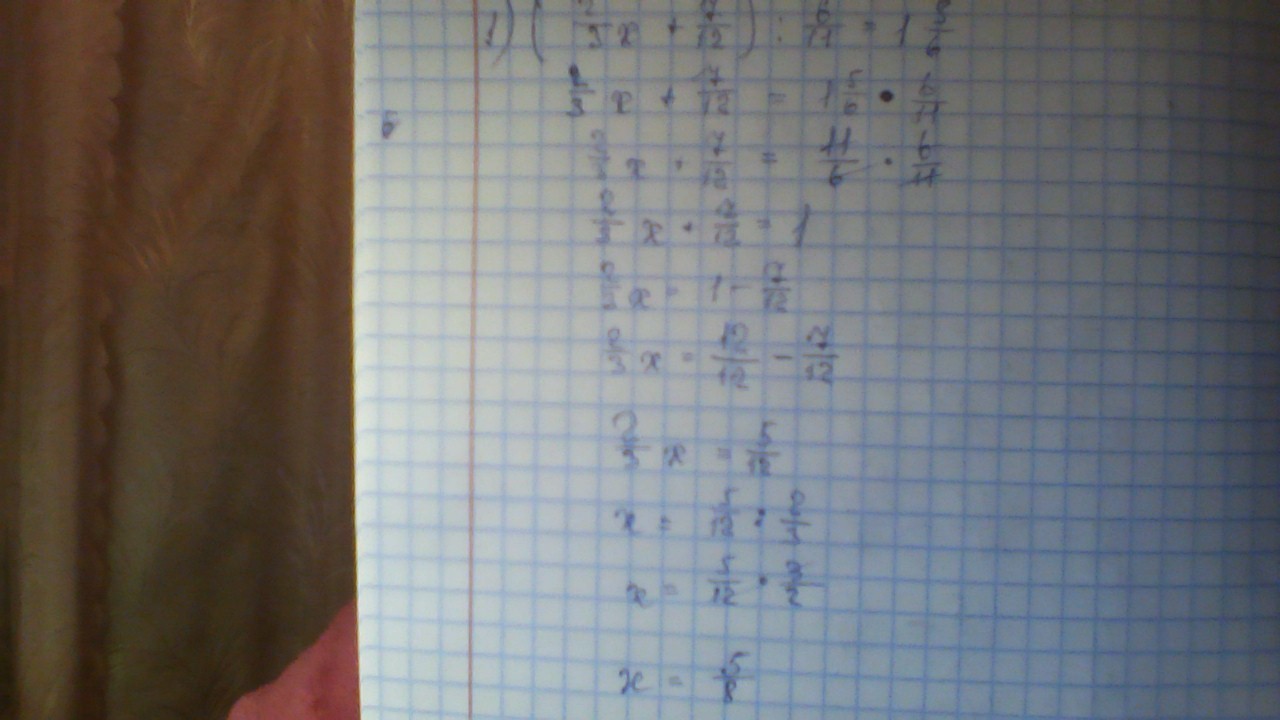 1) (2/3 x + 7/12) : 6/11 = 1 5/6
2/3 x + 7/12 = 1 5/6 · 6/11
2/3 x + 7/12 = 11/6 · 6/11
2/3 x + 7/12 = 1
2/3 x = 1 - 7/12
2/3 x = 12/12 - 7/12
2/3 x = 5/12
x = 5/12 : 2/3
x = 5/12 · 3/2
x = 5/8